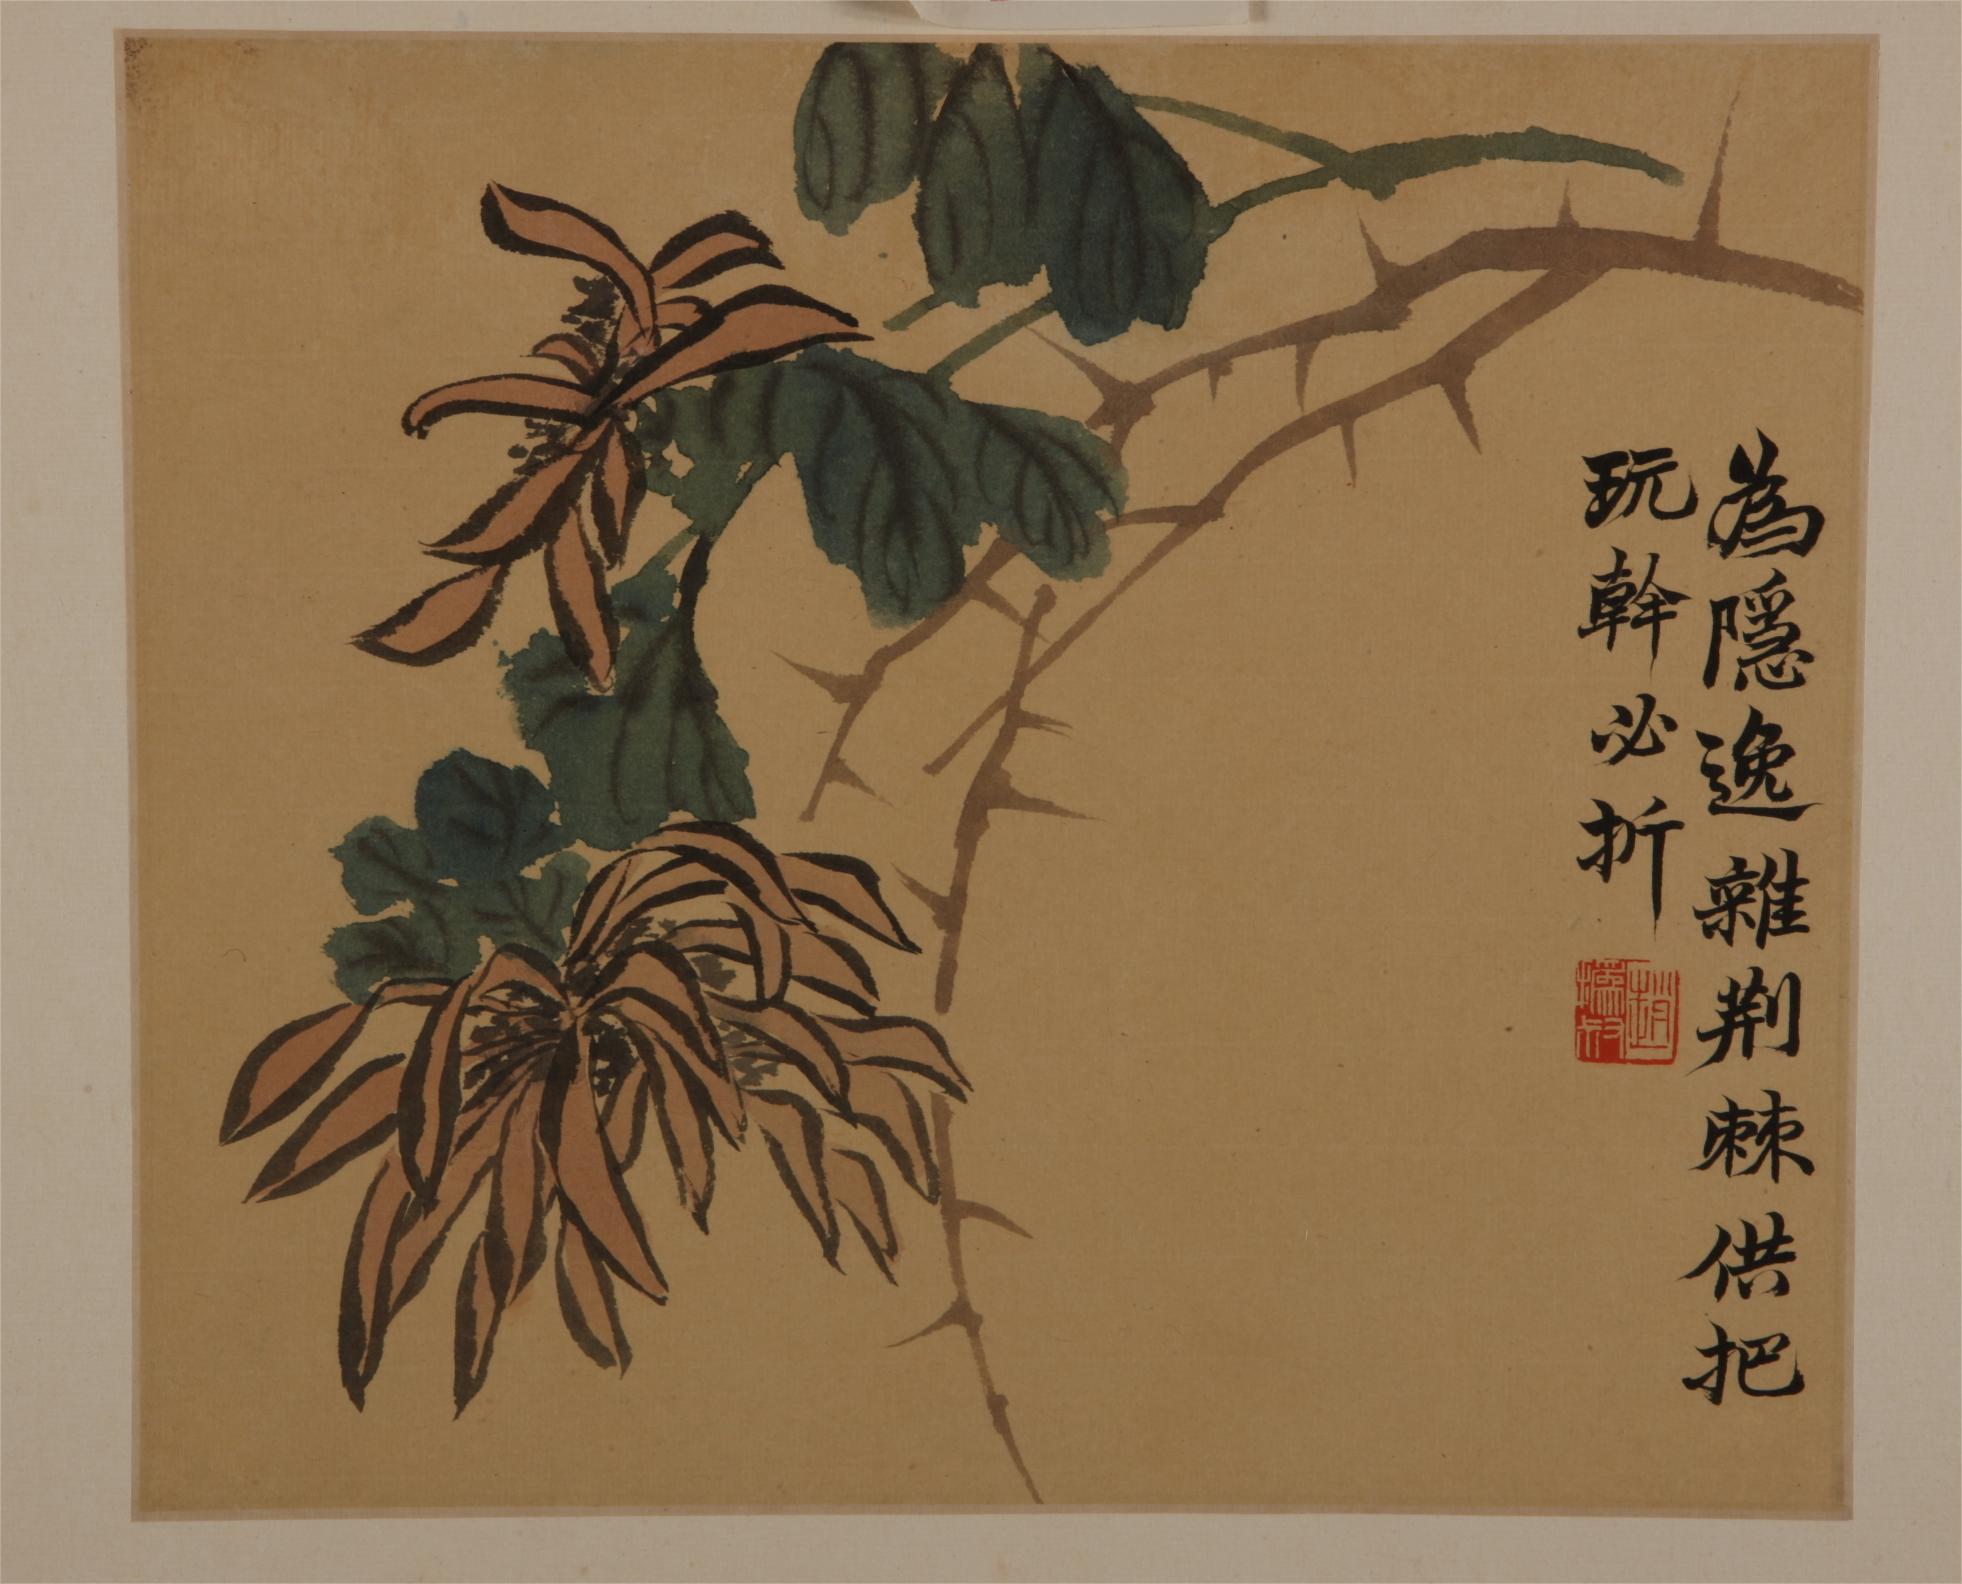 為隱逸雜荆棘供把
玩幹必折
趙
撝叔